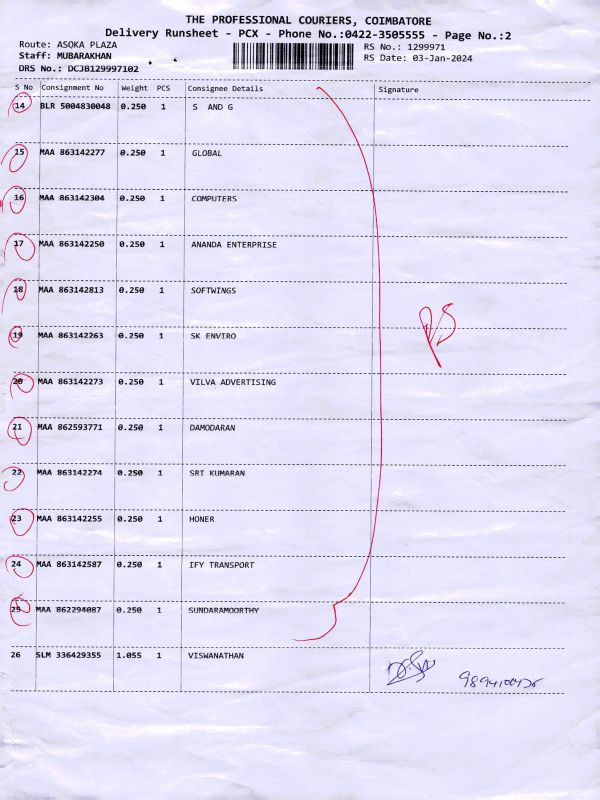 THE PROFESSIONAL COURIERS, COIMBATORE
Delivery Runsheet - PCX - Phone No.:0422-3505555 - Page No.:2
Route: ASOKA PLAZA RS No.: 1299971
Staff: MUBARAKHAN RS Date: 03-Jan-2024
DRS No.: DCJB129997102
S No Consignment No Weight PCS Consignee Details Signature
14 BLR 5004830048 0.250 1 S AND G
15 MAA 863142277 0.250 1 GLOBAL
16 MAA 863142304 0.250 1 COMPUTERS
17 MAA 863142250 0.250 1 ANANDA ENTERPRISE
18 MAA 863142813 0.250 1 SOFTWINGS
19 MAA 863142263 0.250 1 SK ENVIRO
20 MAA 863142273 0.250 1 VILVA ADVERTISING
21 MAA 862593771 0.250 1 DAMODARAN
22 MAA 863142274 0.250 1 SRI KUMARAN
23 MAA 863142255 0.250 1 HONER
24 MAA 863142587 0.250 1 IFY TRANSPORT
25 MAA 862294087 0.250 1 SUNDARAMOORTHY
26 SLM 336429355 1.055 1 VISWANATHAN